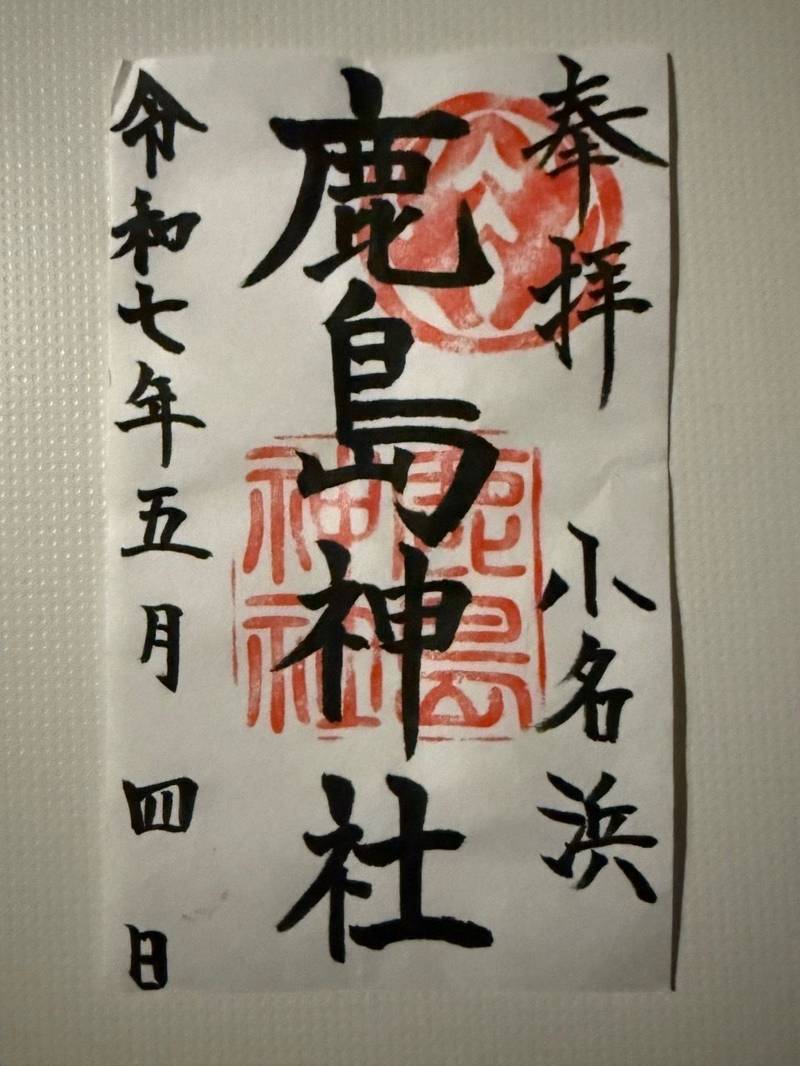 奉拝　小名浜
鹿島神社
鹿島神社
令和七年五月四日